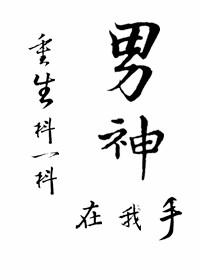 重生抖一抖
男神
在我手